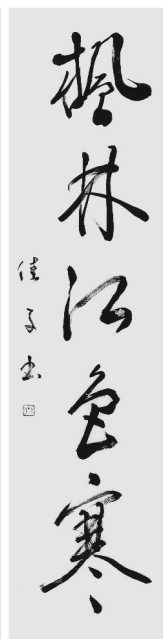 楓林江色寒
佳子書